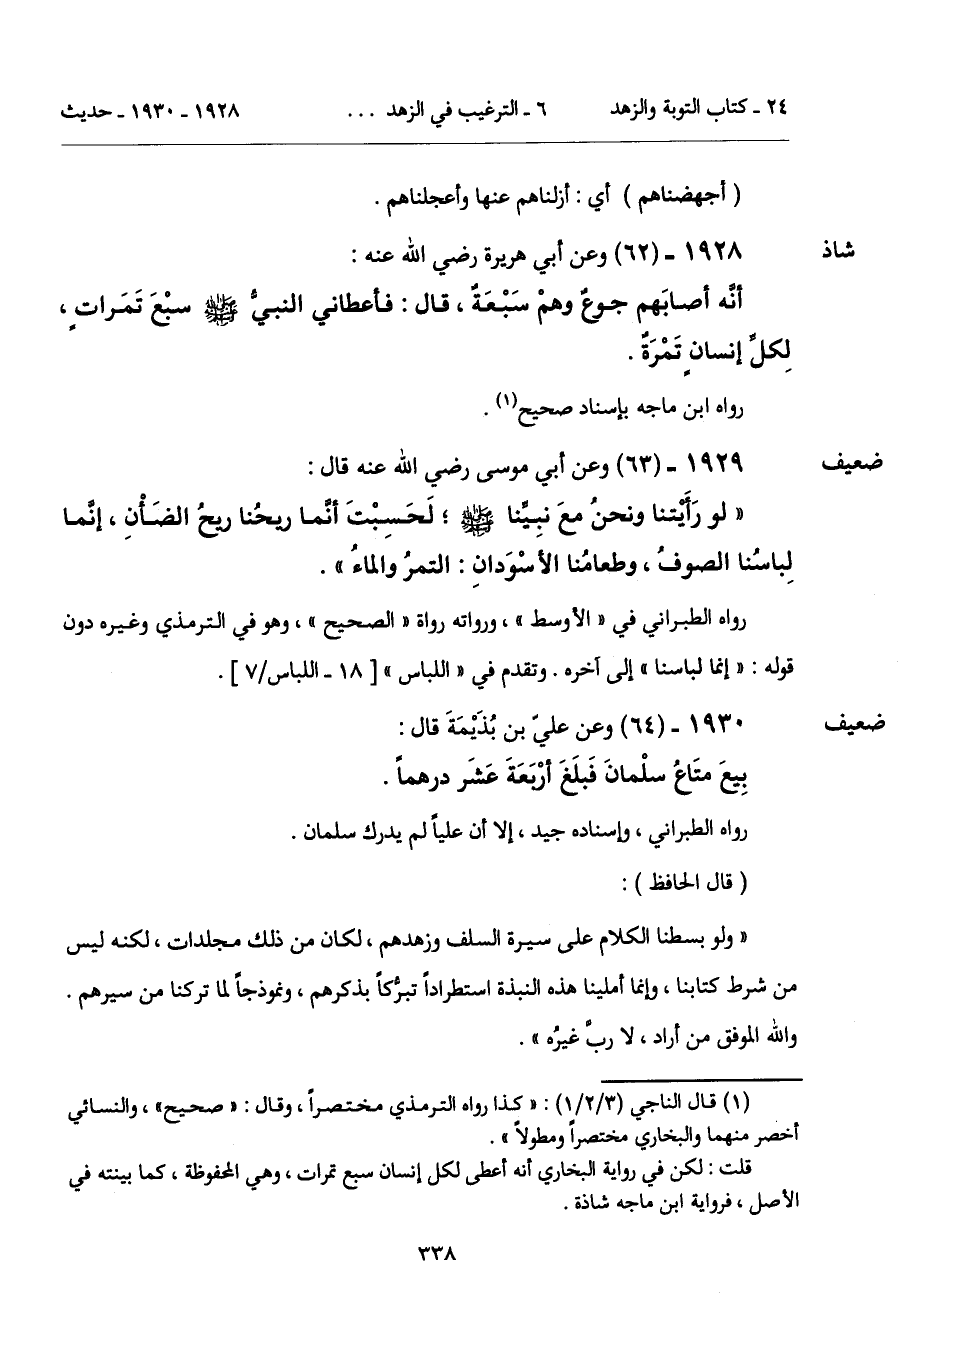 ٢٤ ـ كتاب التوبة والزهد ٦ ـ الترغيب في الزهد ... ١٩٢٨ ـ ١٩٣٠ ـ حديث
( أجهضناهم ) أي : أزلناهم عنها وأعجلناهم .
شاذ ١٩٢٨ ـ (٦٢) وعن أبي هريرة رضي الله عنه :
أنَّه أصابَهم جوعٌ وهمْ سَبْعَةٌ ، قال : فأعطاني النبيُّ ﷺ سبْعَ تَمَراتٍ ،
لِكلِّ إنسانٍ تَمْرَةٌ .
رواه ابن ماجه بإسناد صحيح(١) .
ضعيف ١٩٢٩ ـ (٦٣) وعن أبي موسى رضي الله عنه قال :
« لو رَأَيْتنا ونحنُ معَ نبِيِّنا ﷺ ؛ لَحَسِبْتَ أنَّما ريحُنا ريحُ الضَأْنِ ، إنَّما
لِباسُنا الصوفُ ، وطعامُنا الأسْوَدانِ : التمرُ والماءُ » .
رواه الطبراني في « الأوسط » ، ورواته رواة « الصحيح » ، وهو في الترمذي وغيره دون
قوله : « إنما لباسنا » إلى آخره . وتقدم في « اللباس » [ ١٨ ـ اللباس/٧ ] .
ضعيف ١٩٣٠ ـ (٦٤) وعن عليّ بن بُذَيْمَةَ قال :
بِيعَ متَاعُ سلْمانَ فَبلَغَ أرْبَعَةَ عَشَر درهماً .
رواه الطبراني ، وإسناده جيد ، إلا أن علياً لم يدرك سلمان .
( قال الحافظ ) :
« ولو بسطنا الكلام على سيرة السلف وزهدهم ، لكان من ذلك مجلدات ، لكنه ليس
من شرط كتابنا ، وإنما أملينا هذه النبذة استطراداً تبرُّكاً بذكرهم ، ونموذجاً لما تركنا من سيرهم .
والله الموفق من أراد ، لا ربَّ غيرُه » .
(١) قال الناجي (١/٢/٣) : « كذا رواه الترمذي مختصراً ، وقال : « صحيح» ، والنسائي
أخصر منهما والبخاري مختصراً ومطولاً » .
قلت : لكن في رواية البخاري أنه أعطى لكل إنسان سبع تمرات ، وهي المحفوظة ، كما بينته في
الأصل ، فرواية ابن ماجه شاذة .
٣٣٨